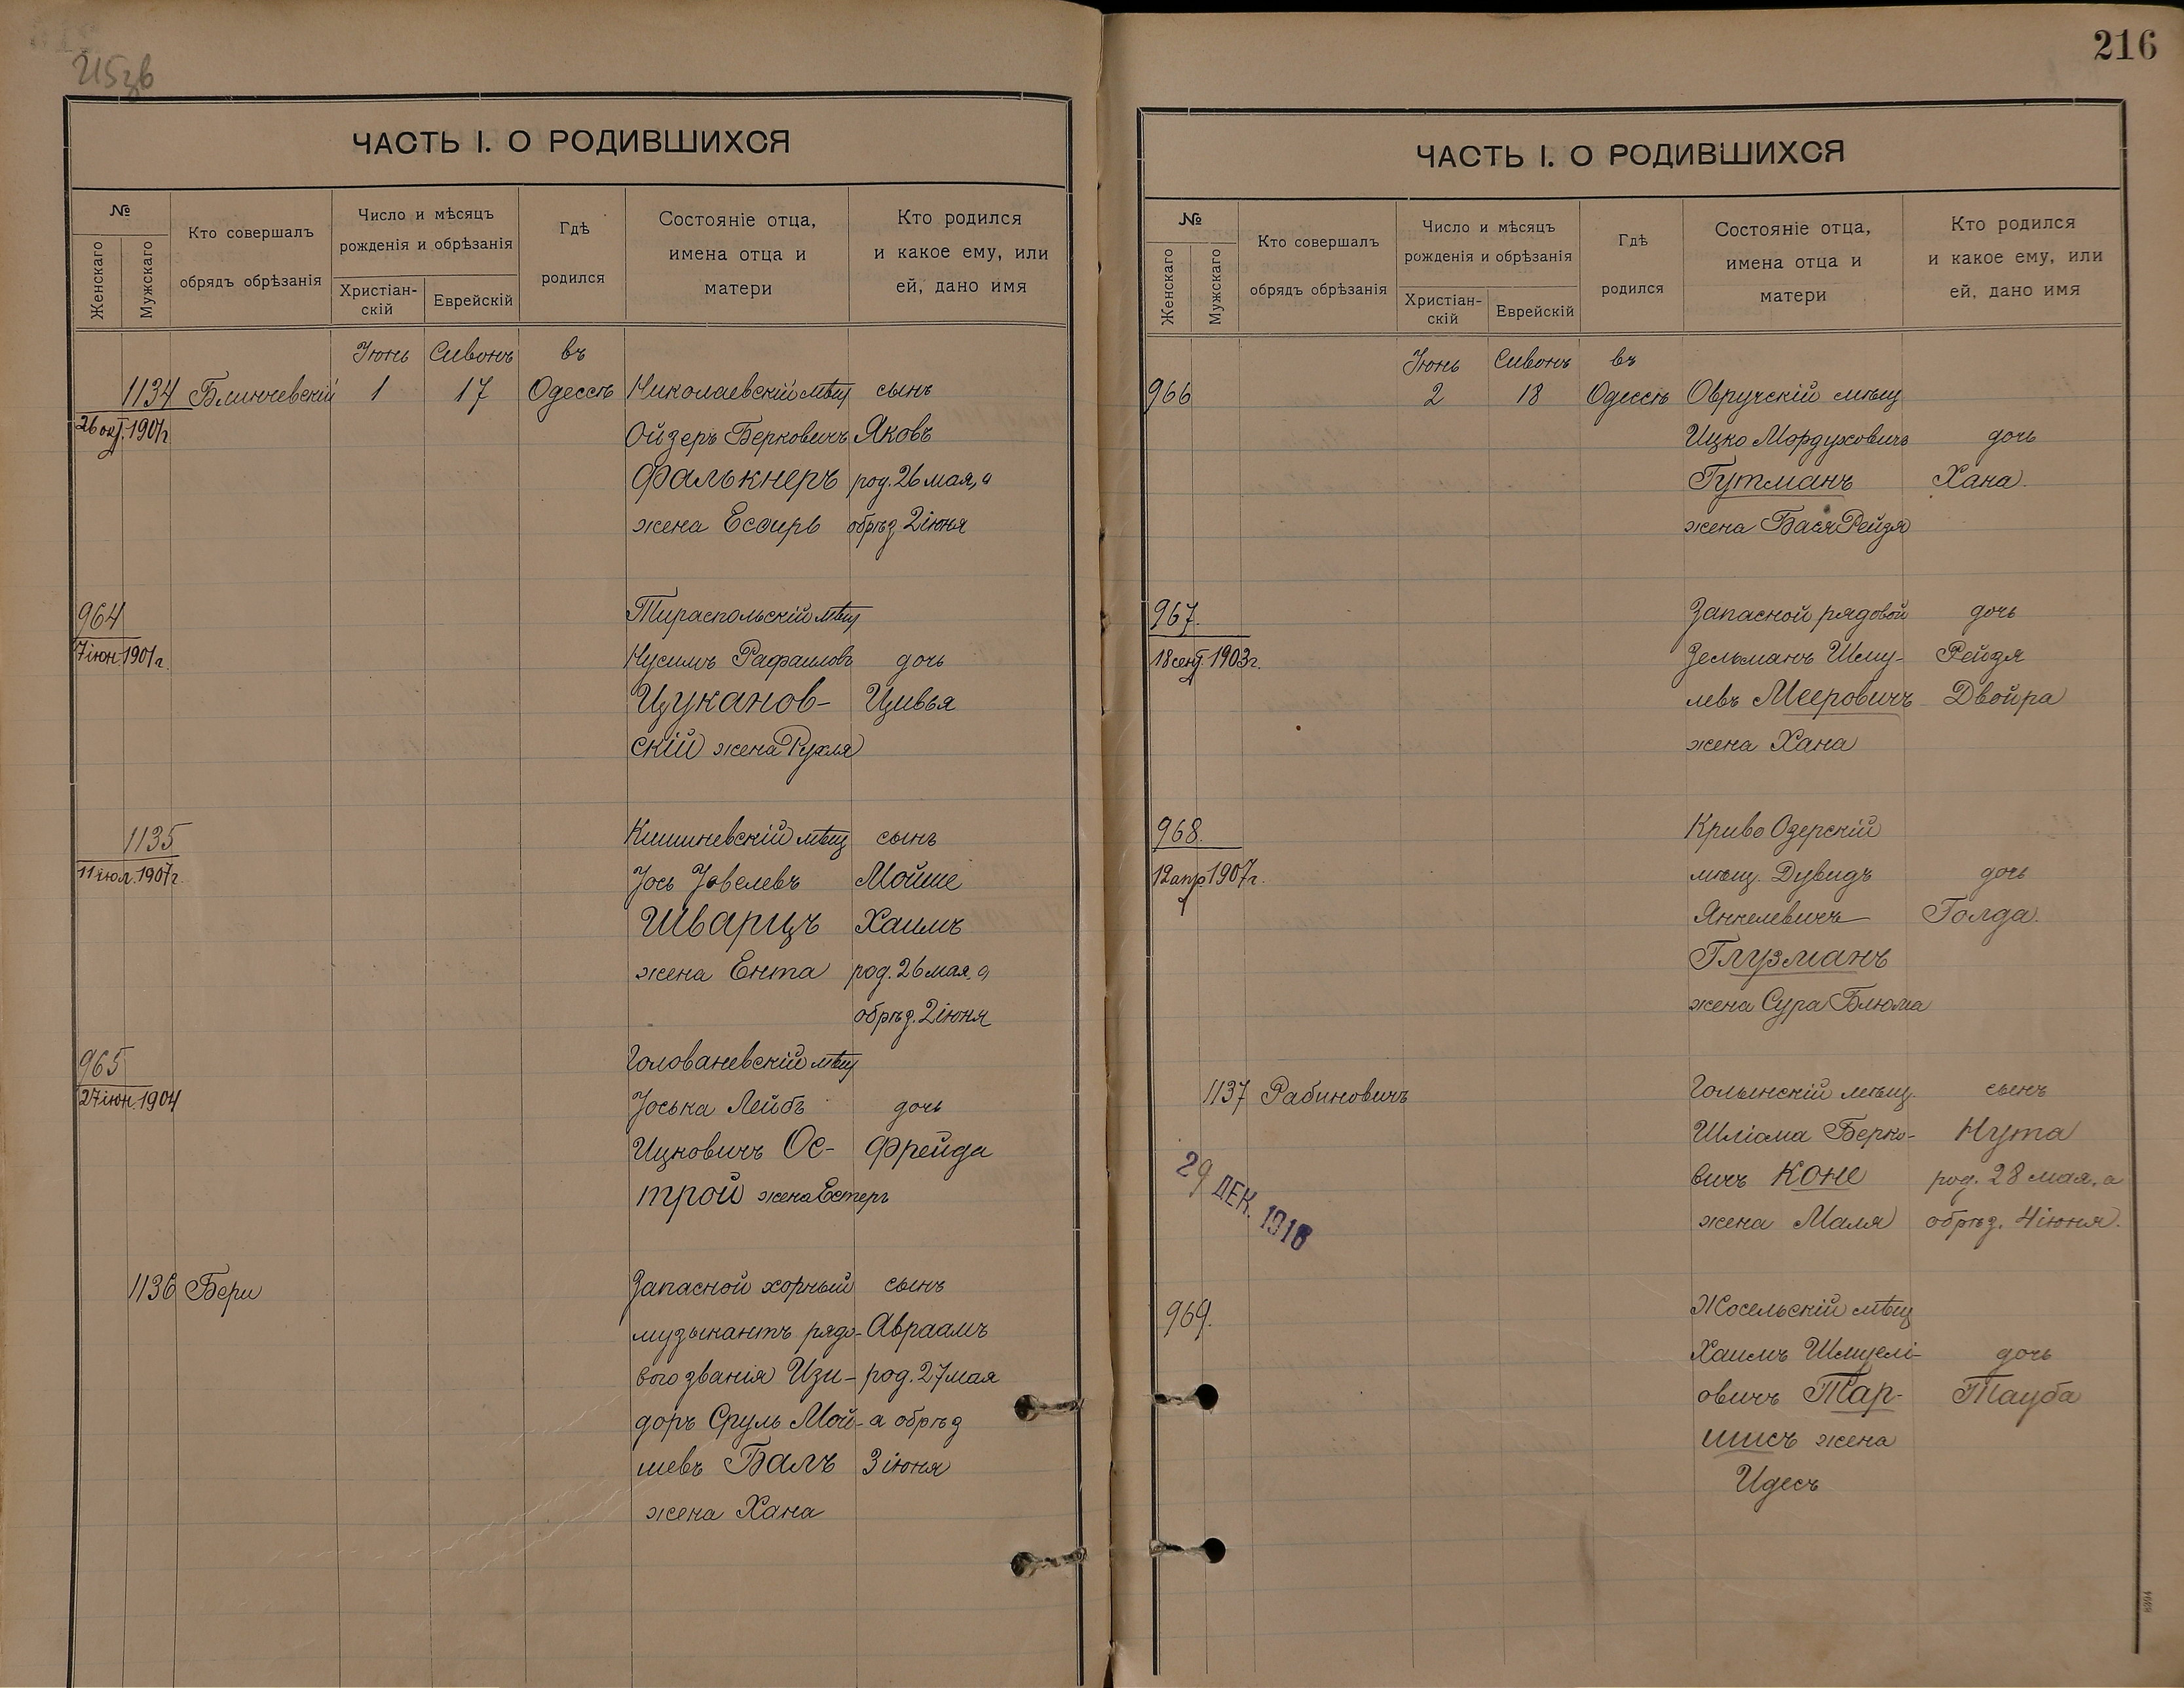 215зв
ЧАСТЬ I. О РОДИВШИХСЯ
№
Женскаго
Мужскаго
Кто совершалъ
обрядъ обрѣзанія
Число и мѣсяцъ
рожденія и обрѣзанія
Христіан-
скій
Еврейскій
Гдѣ
родился
Состояніе отца,
имена отца и
матери
Кто родился
и какое ему, или
ей, дано имя
Іюнь Сивонъ въ
1134 Блинчевскій 1 17 Одессѣ Николаевскій мѣщ сынъ
26 окт. 1901г Ойзеръ Берковичъ Яковъ
Фалькнеръ род. 26 мая, а
жена Есѳирь обрѣз 2 іюня
964 Тираспольскій мѣщ
7 іюн 1901г. Нусимъ Рафаиловъ дочь
Цуканов- Цивья
скій жена Рухля
1135 Кишиневскій мѣщ сынъ
11 іюл. 1907г. Іось Іовелевъ Мойше
Шварцъ Хаимъ
жена Ента род. 26 мая, а
обрѣз. 2 іюня
965 Голованевскій мѣщ
27 іюн. 1904 Іоська Лейбъ дочь
Ицковичъ Ос- Фрейда
трой жена Естеръ
1136 Бери Запасной хорный сынъ
музыкантъ рядо- Авраамъ
вого званія Изи- род. 27 мая
доръ Сруль Мой- а обрѣз
шевъ Балъ 3 іюня
жена Хана
216
ЧАСТЬ I. О РОДИВШИХСЯ
№
Женскаго
Мужскаго
Кто совершалъ
обрядъ обрѣзанія
Число и мѣсяцъ
рожденія и обрѣзанія
Христіан-
скій
Еврейскій
Гдѣ
родился
Состояніе отца,
имена отца и
матери
Кто родился
и какое ему, или
ей, дано имя
Іюнь Сивонъ въ
966 2 18 Одессѣ Овручскій мѣщ
Ицко Мордуховичъ дочь
Гутманъ Хана.
жена Бася Рейзя
967. Запасной рядовой дочь
18 сент. 1903г. Зельманъ Шму- Рейзя
левъ Мееровичъ Двойра
жена Хана
968. Криво Озерскій
12 апр 1907г. мѣщ. Дувидъ дочь
Янкелевичъ Голда.
Глузманъ
жена Сура Блюма
1137 Рабиновичъ Гольинскій мѣщ. сынъ
Шліома Берко- Нута
вичъ Коне род. 28 мая, а
жена Маля обрѣз. 4 іюня.
29 ДЕК. 1916
969. Жосельскій мѣщ
Хаимъ Шмуелі- дочь
овичъ Тар- Тауба
шисъ жена
Идесъ